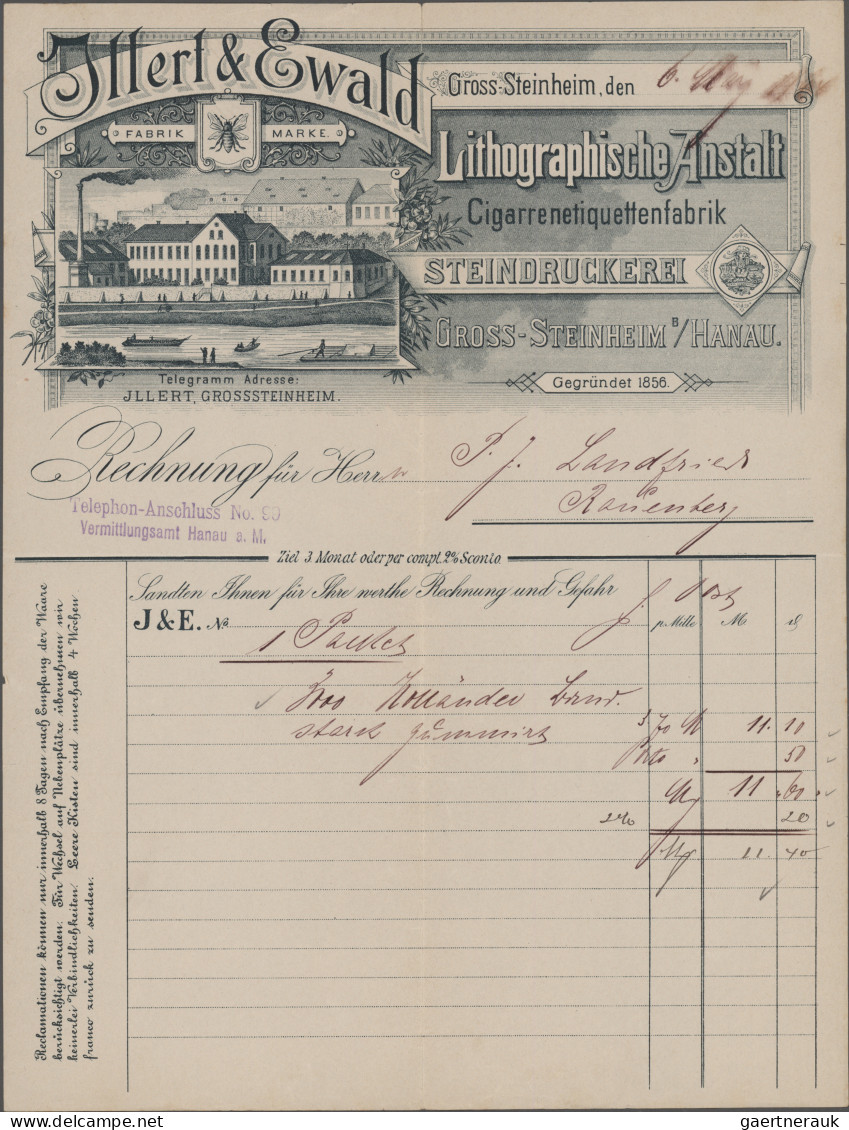 Illert & Ewald
FABRIK MARKE.
Gross-Steinheim, den 6.
Lithographische Anstalt
Cigarrenetiquettenfabrik
STEINDRUCKEREI
GROSS-STEINHEIM B/HANAU.
Gegründet 1856.
Telegramm Adresse:
JLLERT, GROSSSTEINHEIM.
Rechnung für Herrn P. J. Landfried
Rauenberg
Telephon-Anschluss No. 99
Vermittlungsamt Hanau a. M.
Ziel 3 Monat oder per compt. 2% Sconto.
Sandten Ihnen für Ihre werthe Rechnung und Gefahr p. Post
J & E. No. p. Mille. M. ₰
1 Packet
Holländer Band.
stark gummirt 3 70 M 11. 10
Porto " 50
M 11 60
2% 20
M 11. 40
Reclamationen können nur innerhalb 8 Tagen nach Empfang der Waare
berücksichtigt werden. Für Wechsel auf Nebenplätze übernehmen wir
keinerlei Verbindlichkeiten. Leere Kisten sind innerhalb 4 Wochen
franco zurück zu senden.
www.delcampe.net
gaertnerauk